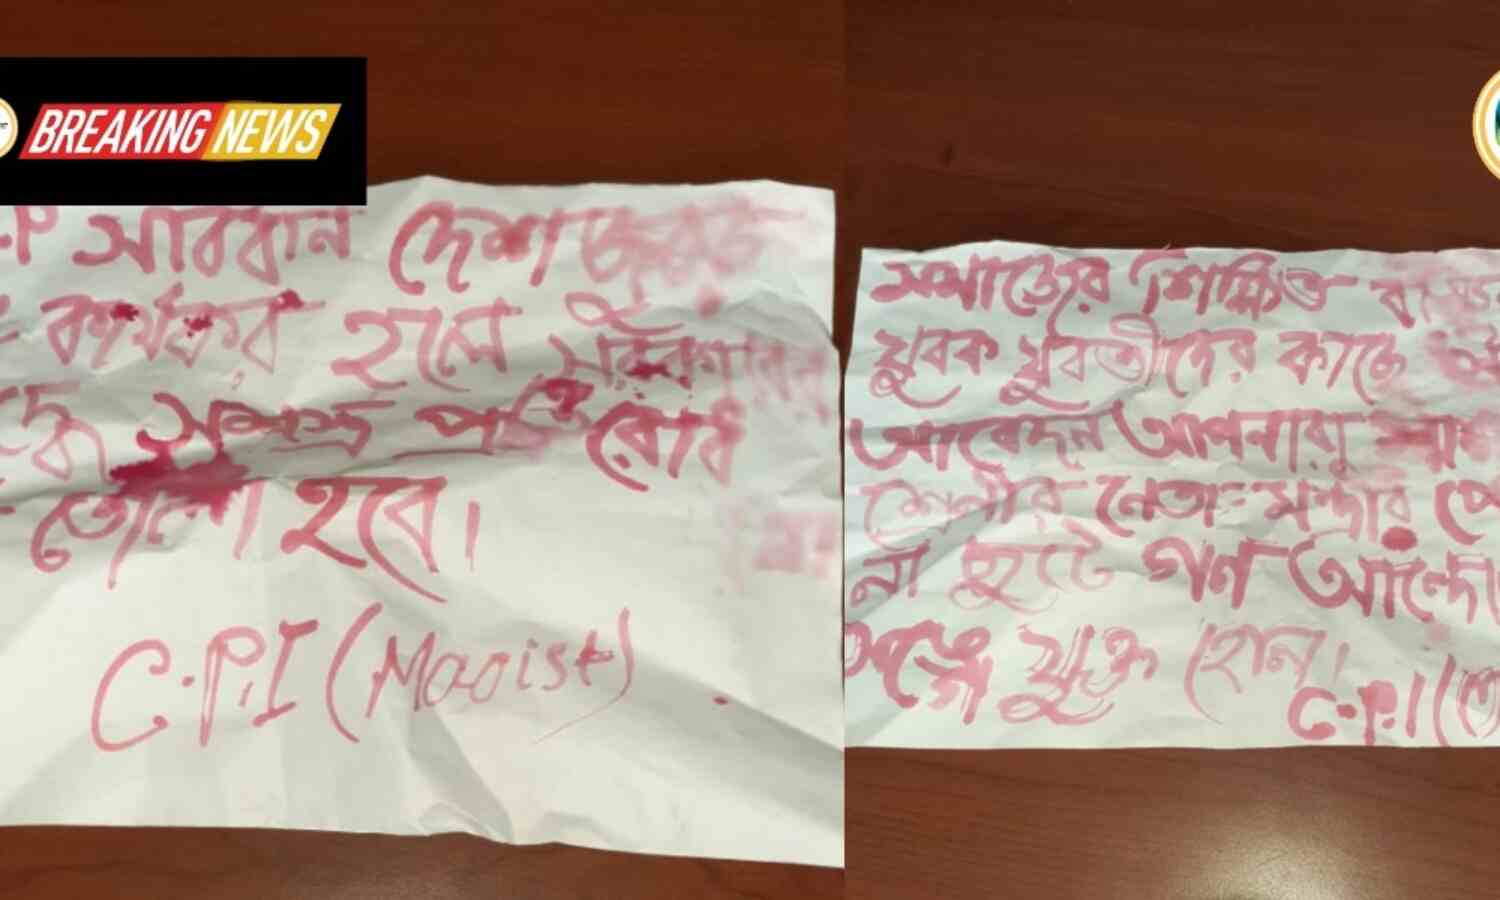 BREAKING NEWS
সাবধান দেশ জুড়ে
কার্যকর হলে
সশস্ত্র প্রতিরোধ
তোলা হবে।
C.P.I (Maoist)
সমাজের শিক্ষিত
যুবক যুবতীদের কাছে
আবেদন আপনারা
শ্রেণীর নেতা-মন্ত্রীর পে
না ছুটে গণ আন্দো
সঙ্গে যুক্ত হোন।
C.P.I (M